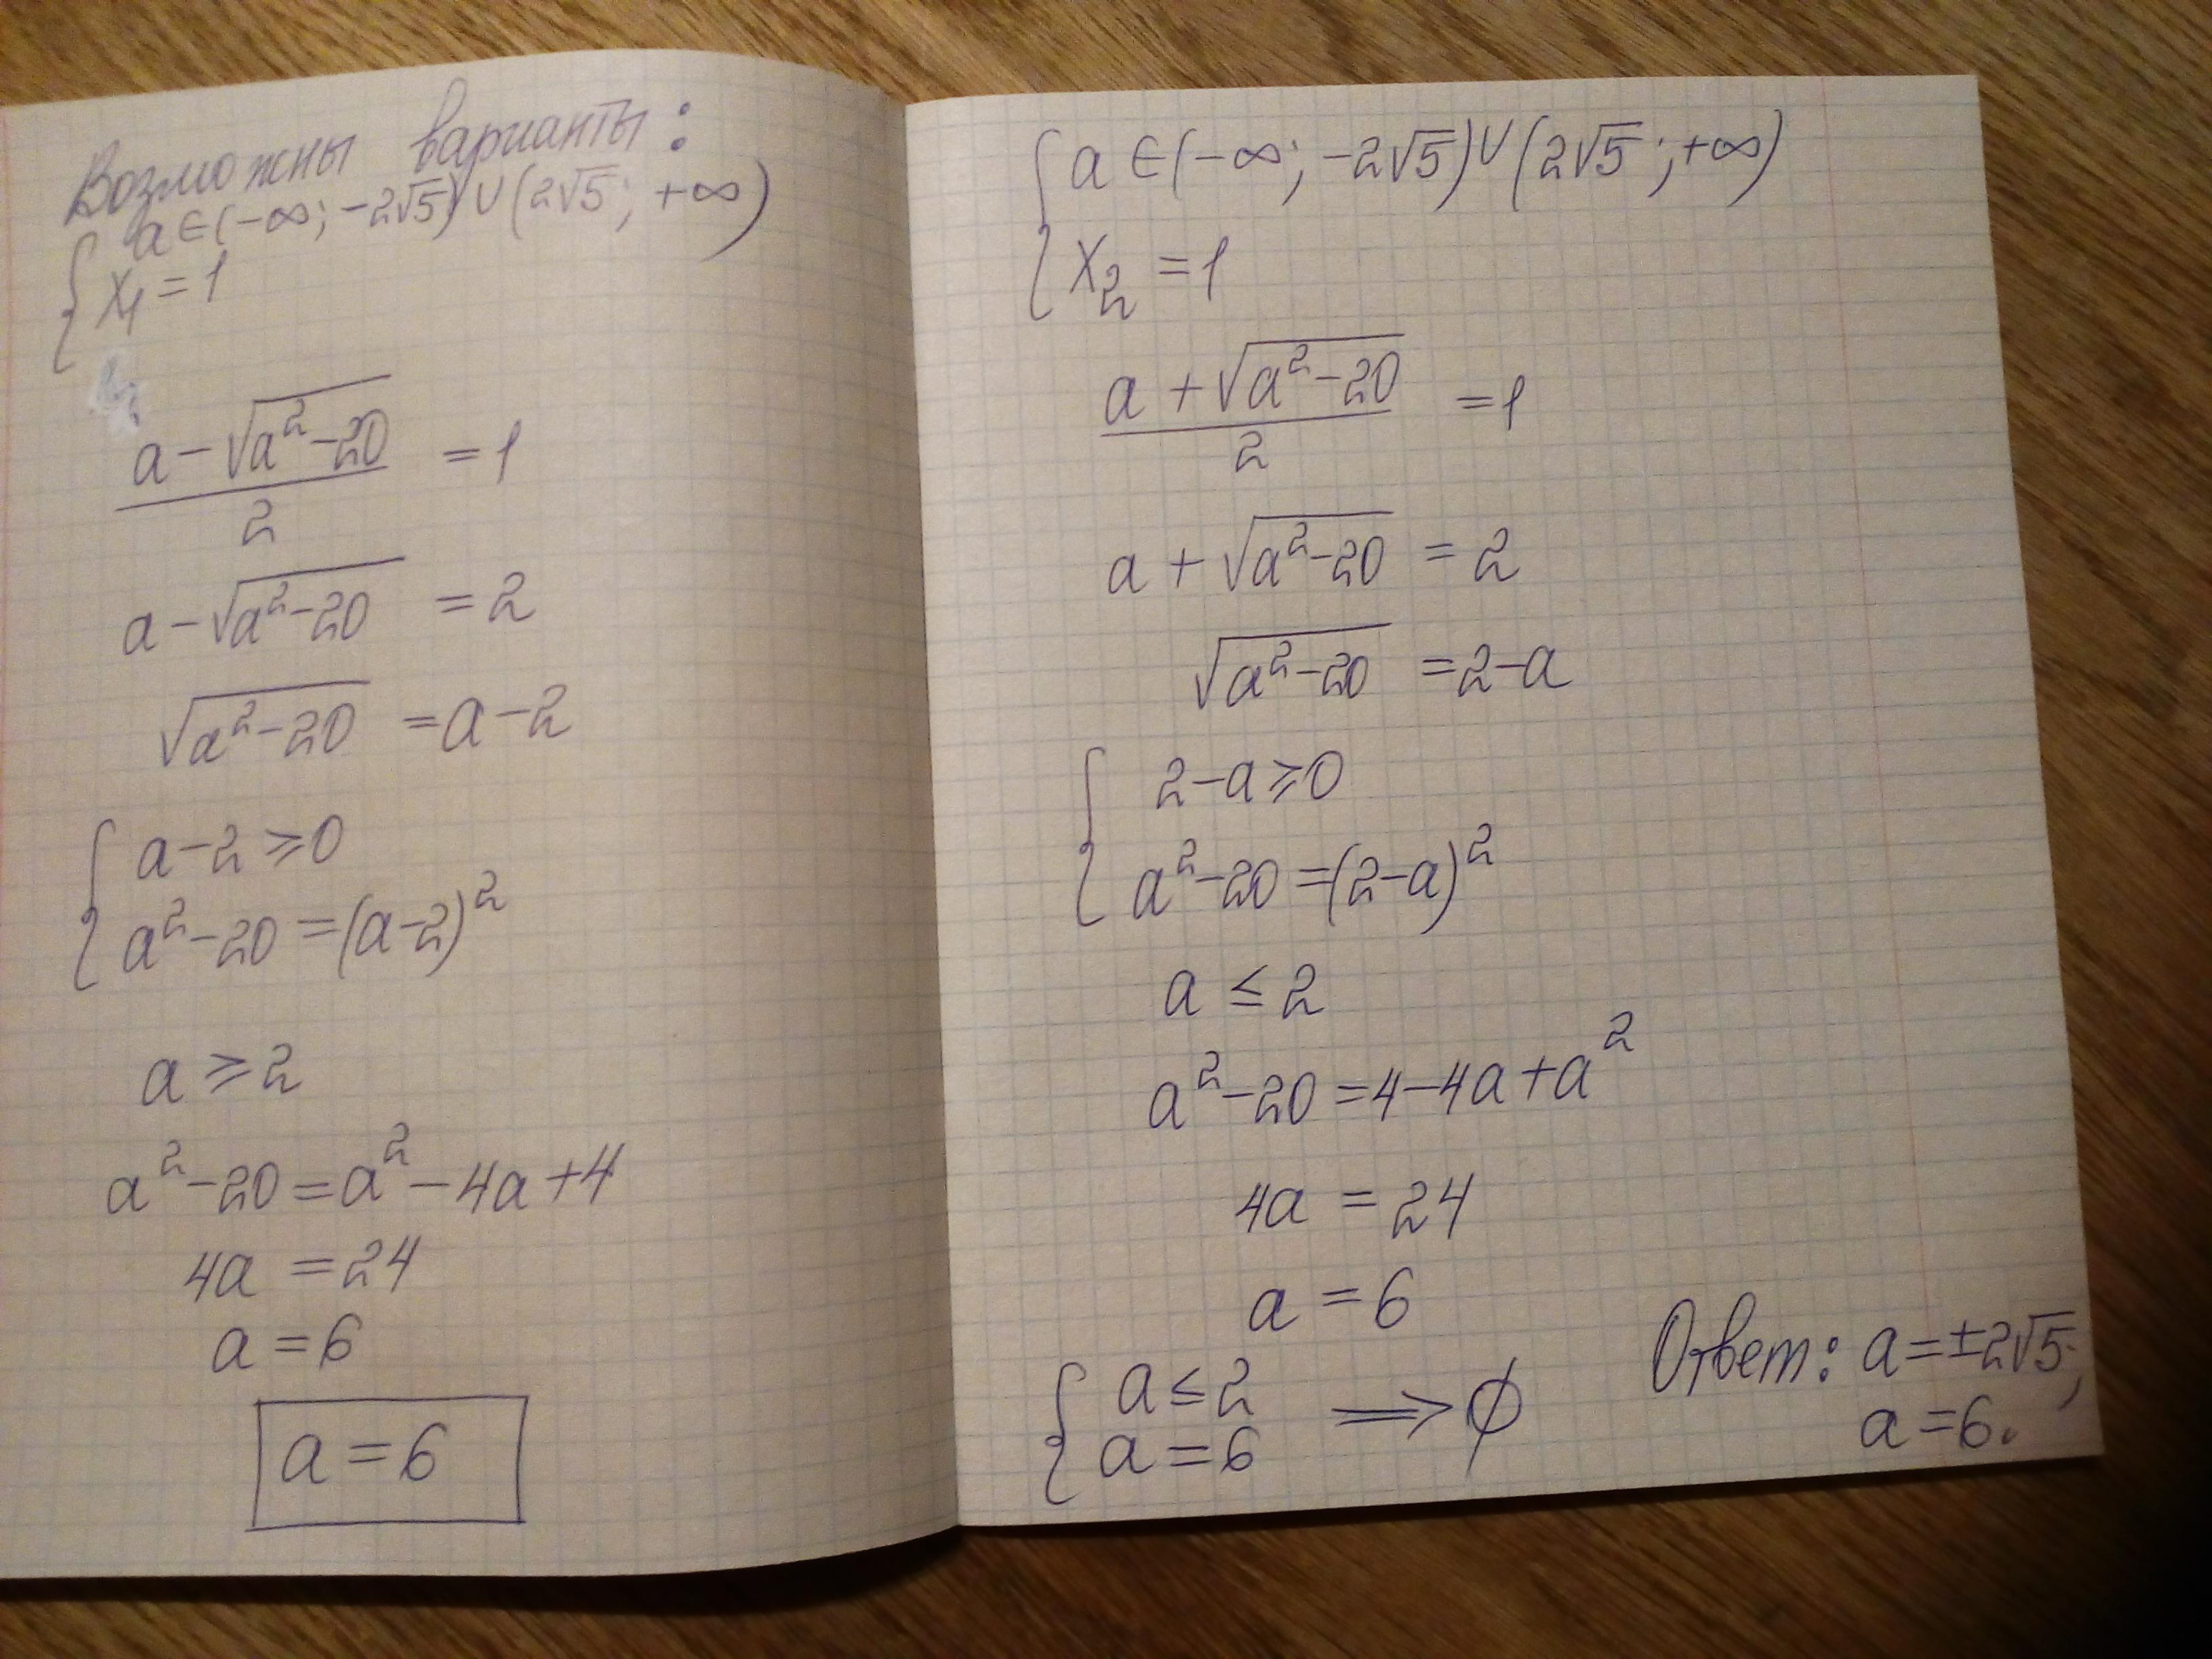 Возможны варианты:
{ a ∈ (-∞; -2√5) ∪ (2√5; +∞)
x₁ = 1
(a - √(a² - 20))/2 = 1
a - √(a² - 20) = 2
√(a² - 20) = a - 2
{ a - 2 ≥ 0
a² - 20 = (a - 2)²
a ≥ 2
a² - 20 = a² - 4a + 4
4a = 24
a = 6
a = 6
{ a ∈ (-∞; -2√5) ∪ (2√5; +∞)
x₂ = 1
(a + √(a² - 20))/2 = 1
a + √(a² - 20) = 2
√(a² - 20) = 2 - a
{ 2 - a ≥ 0
a² - 20 = (2 - a)²
a ≤ 2
a² - 20 = 4 - 4a + a²
4a = 24
a = 6
{ a ≤ 2
a = 6 ⟹ ∅
Ответ: a = ±2√5;
a = 6.